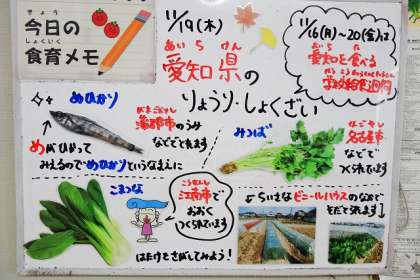 きょう
今日の
しょくいく
食育メモ
11/19(木)
あいちけん
愛知県の
りょうり・しょくざい
11/16(月)〜20(金)は
あいち た
愛知を食べる
学校給食週間
めひかり
がまごおりし
蒲郡市のうみ
などでとれます
めがひかって
みえるのでめひかりというなまえに
みつば
なごやし
名古屋市
などで
つくられています
こまつな
こうなんし
江南市で
おおく
つくられています
はたけをさがしてみよう!
ちいさなビニールハウスのなかで
そだてられます